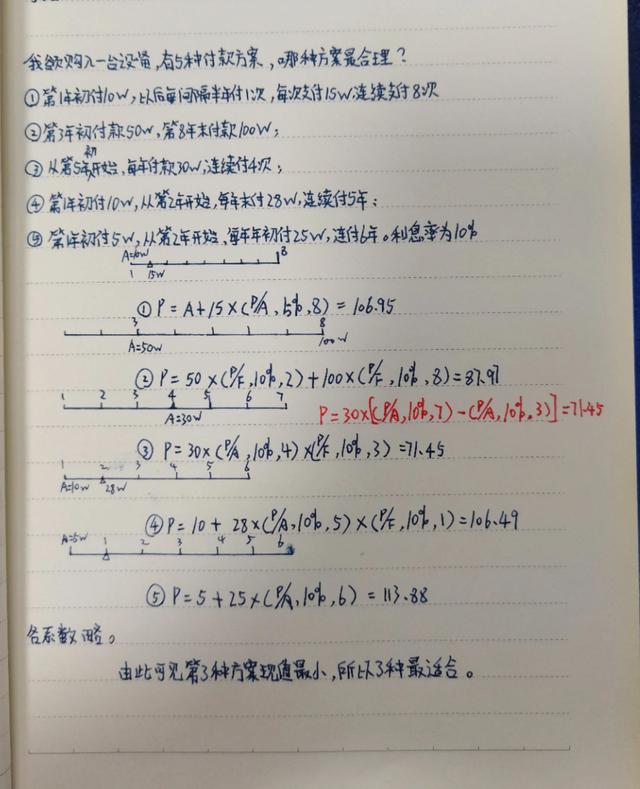 我欲购入一台设备，有5种付款方案，哪种方案最合理？
①第1年初付10W，以后每间隔半年付1次，每次支付15W，连续支付8次
②第3年初付款50W，第8年末付款100W；
③从第5年初开始，每年付款30W，连续付4次；
④第1年初付10W，从第2年开始，每年末付28W，连续付5年；
⑤第1年初付5W，从第2年开始，每年年初付25W，连付6年。利息率为10%
A=10W 8
1 15W
①P=A+15×(P/A，5%，8)=106.95
3 8
A=50W 100W
②P=50×(P/F，10%，2)+100×(P/F，10%，8)=87.97
1 2 3 4 5 6 7
A=30W
P=30×[(P/A，10%，7)-(P/A，10%，3)]=71.45
③P=30×(P/A，10%，4)×(P/F，10%，3)=71.45
1 2 3 4 5 6
A=10W 28W
④P=10+28×(P/A，10%，5)×(P/F，10%，1)=106.49
A=5W 1 2 3 4 5 6
⑤P=5+25×(P/A，10%，6)=113.88
各系数略。
由此可见第3种方案现值最小，所以3种最适合。